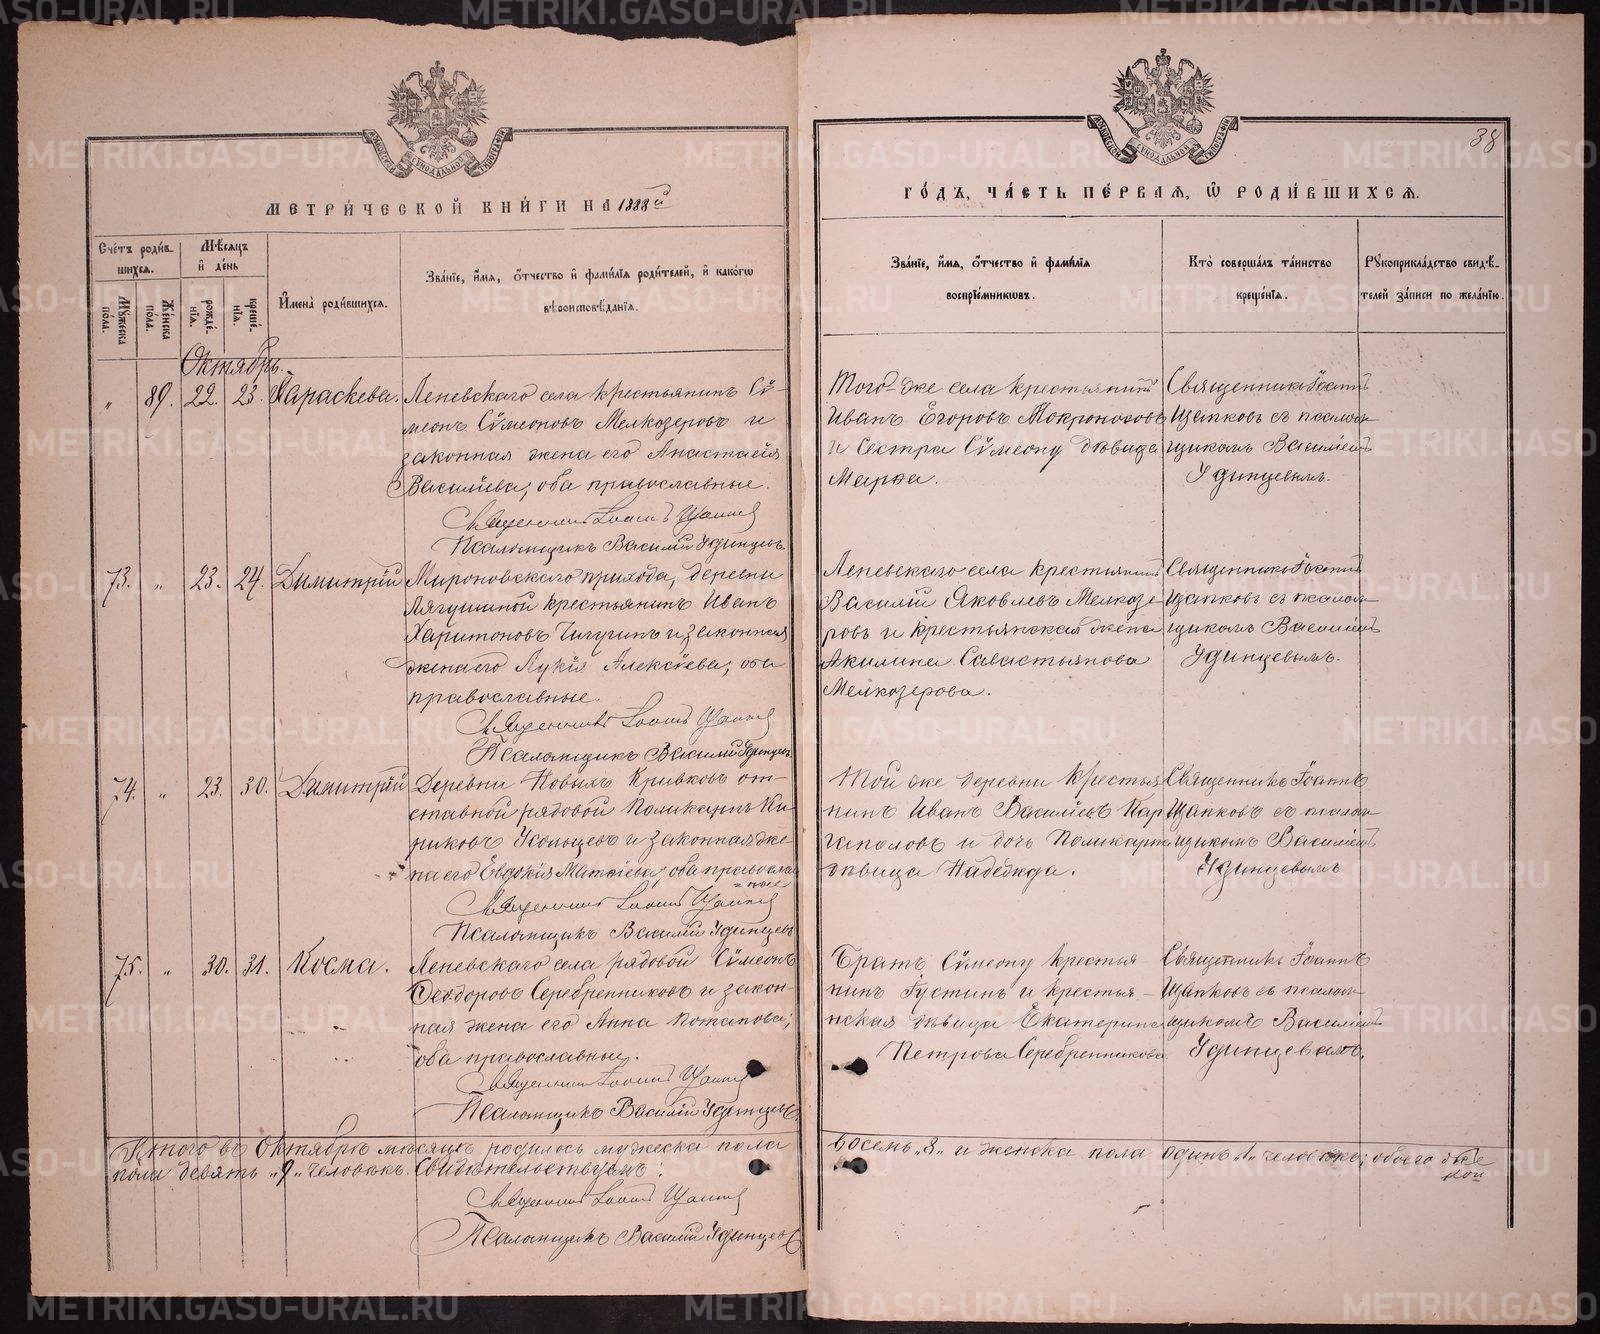 МЕТРИЧЕСКОЙ КНИГИ НА 1888й
Счетъ родив-
шихся.
Мѣсяцъ
и день
Имена родившихся.
Званіе, имя, отчество и фамилія родителей, и какогω
вѣроисповѣданія.
Мужеска
пола.
Женска
пола.
рожде-
нія.
креще-
нія.
Октябрь.
„ 89. 22. 23. Параскева.
Леневскаго села крестьянинъ Сѵ-
меонъ Сѵмеоновъ Мелкозеровъ и
законная жена его Анастасія
Васильева; оба православные.
Священникъ Іоаннъ Щапковъ
Псаломщикъ Василій Удинцевъ.
73. „ 23. 24. Димитрій
Мироновскаго прихода, деревни
Лягушиной крестьянинъ Иванъ
Харитоновъ Чичугинъ и законная
жена его Лукія Алексѣева; оба
православные.
Священникъ Іоаннъ Щапковъ
Псаломщикъ Василій Удинцевъ
74. „ 23. 30. Димитрій
Деревни Новыхъ Кривковъ от-
ставной рядовой Поликарпъ Ки-
риковъ Усольцевъ и законная же-
на его Евдокія Матѳіева; оба православ-
ные
Священникъ Іоаннъ Щапковъ
Псаломщикъ Василій Удинцевъ
75. „ 30. 31. Косма.
Леневскаго села рядовой Сѵмеонъ
Ѳеодоровъ Серебренниковъ и закон-
ная жена его Анна Потапова;
оба православные.
Священникъ Іоаннъ Щапковъ
Псаломщикъ Василій Удинцевъ.
Итого въ Октябрѣ мѣсяцѣ родилось мужеска пола
пола девять „9„ человѣкъ. Свидѣтельствуемъ:
Священникъ Іоаннъ Щапковъ
Псаломщикъ Василій Удинцевъ
38
ГОДЪ, ЧАСТЬ ПЕРВАЯ, Ѡ РОДИВШИХСЯ.
Званіе, имя, отчество и фамилія
воспріемникωвъ.
Кто совершалъ таинство
крещенія.
Рукоприкладство свидѣ-
телей записи по желанію.
Того-же села крестьянинъ
Иванъ Егоровъ Мокроносовъ
и Сестра Сѵмеону дѣвица
Марѳа.
Священникъ Іоаннъ
Щапковъ съ псалом-
щикомъ Василіемъ
Удинцевымъ.
Леневскаго села крестьянинъ
Василій Яковлевъ Мелкозе-
ровъ и крестьянская жена
Акилина Савастьянова
Мелкозерова.
Священникъ Іоаннъ
Щапковъ съ псалом-
щикомъ Василіемъ
Удинцевымъ.
Той же деревни крестья-
нинъ Иванъ Васильевъ Кар-
гаполовъ и дочь Поликарпа
дѣвица Надежда.
Священникъ Іоаннъ
Щапковъ съ псалом-
щикомъ Василіемъ
Удинцевымъ
Братъ Сѵмеону крестья-
нинъ Іустинъ и крестья-
нская дѣвица Екатерина
Петрова Серебренникова
Священникъ Іоаннъ
Щапковъ съ псалом-
щикомъ Василіемъ
Удинцевымъ.
восемь „8„ и женска пола одинъ „1„ человѣкъ; обоего же